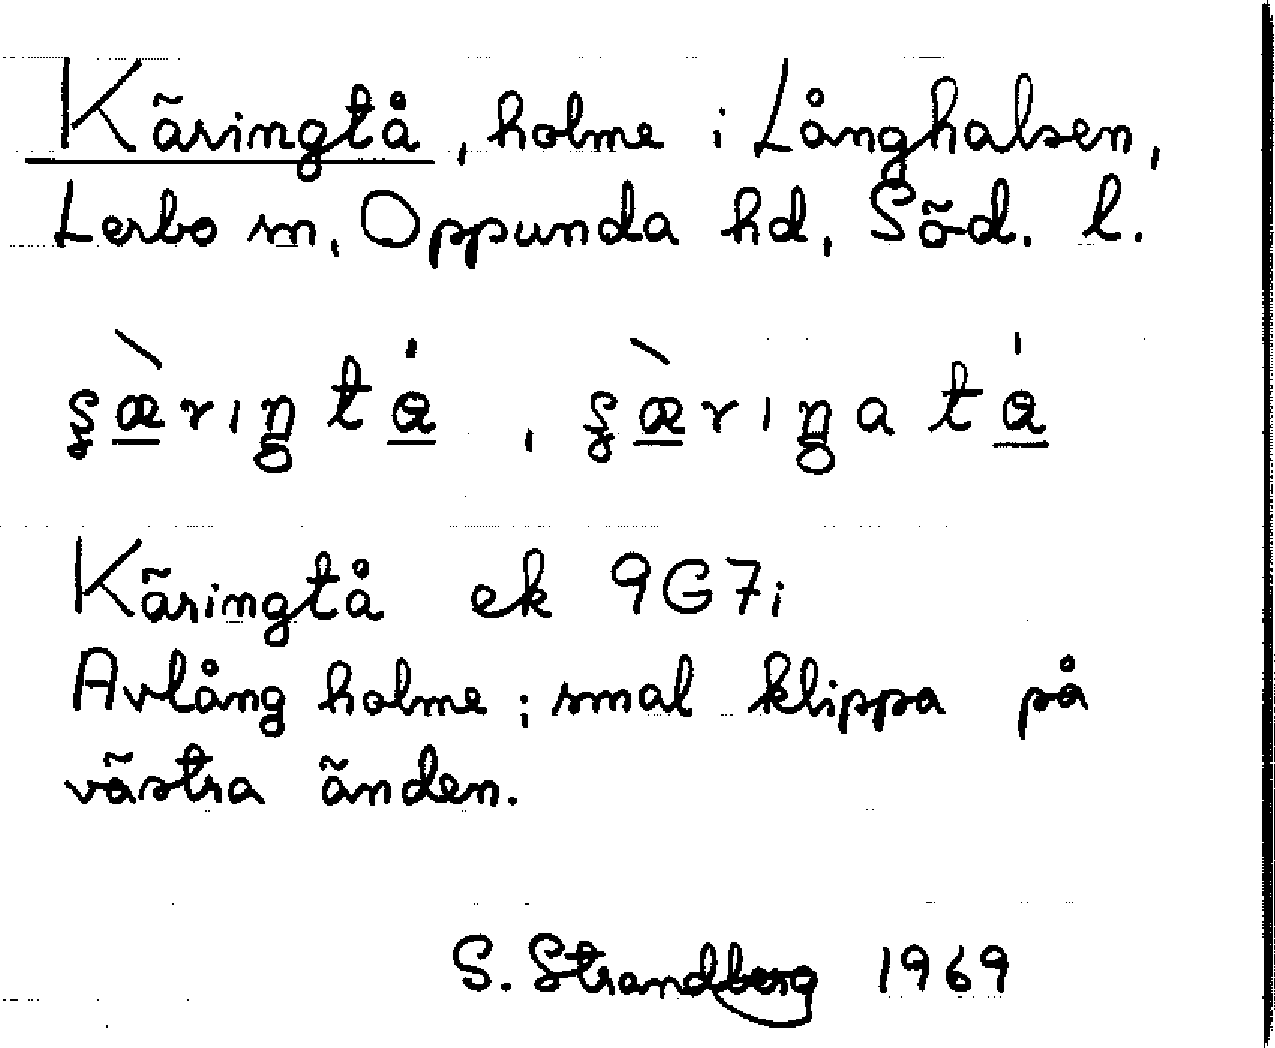 Käringtå, holme i Långhalsen,
Lerbo sn, Oppunda hd, Söd. l.
Käringtå ek 9G7i
Avlång holme; smal klippa på
västra änden.
S. Strandberg 1969